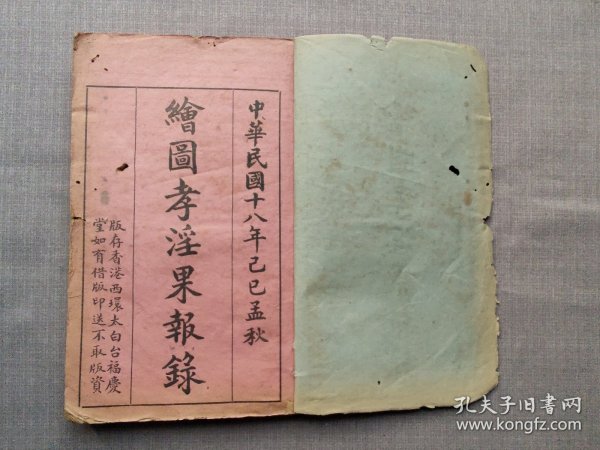 中華民國十八年己巳孟秋
繪圖孝淫果報錄
版存香港西環太白台福慶
堂如有借版印送不取版資
孔夫子旧书网
www.kongfz.com